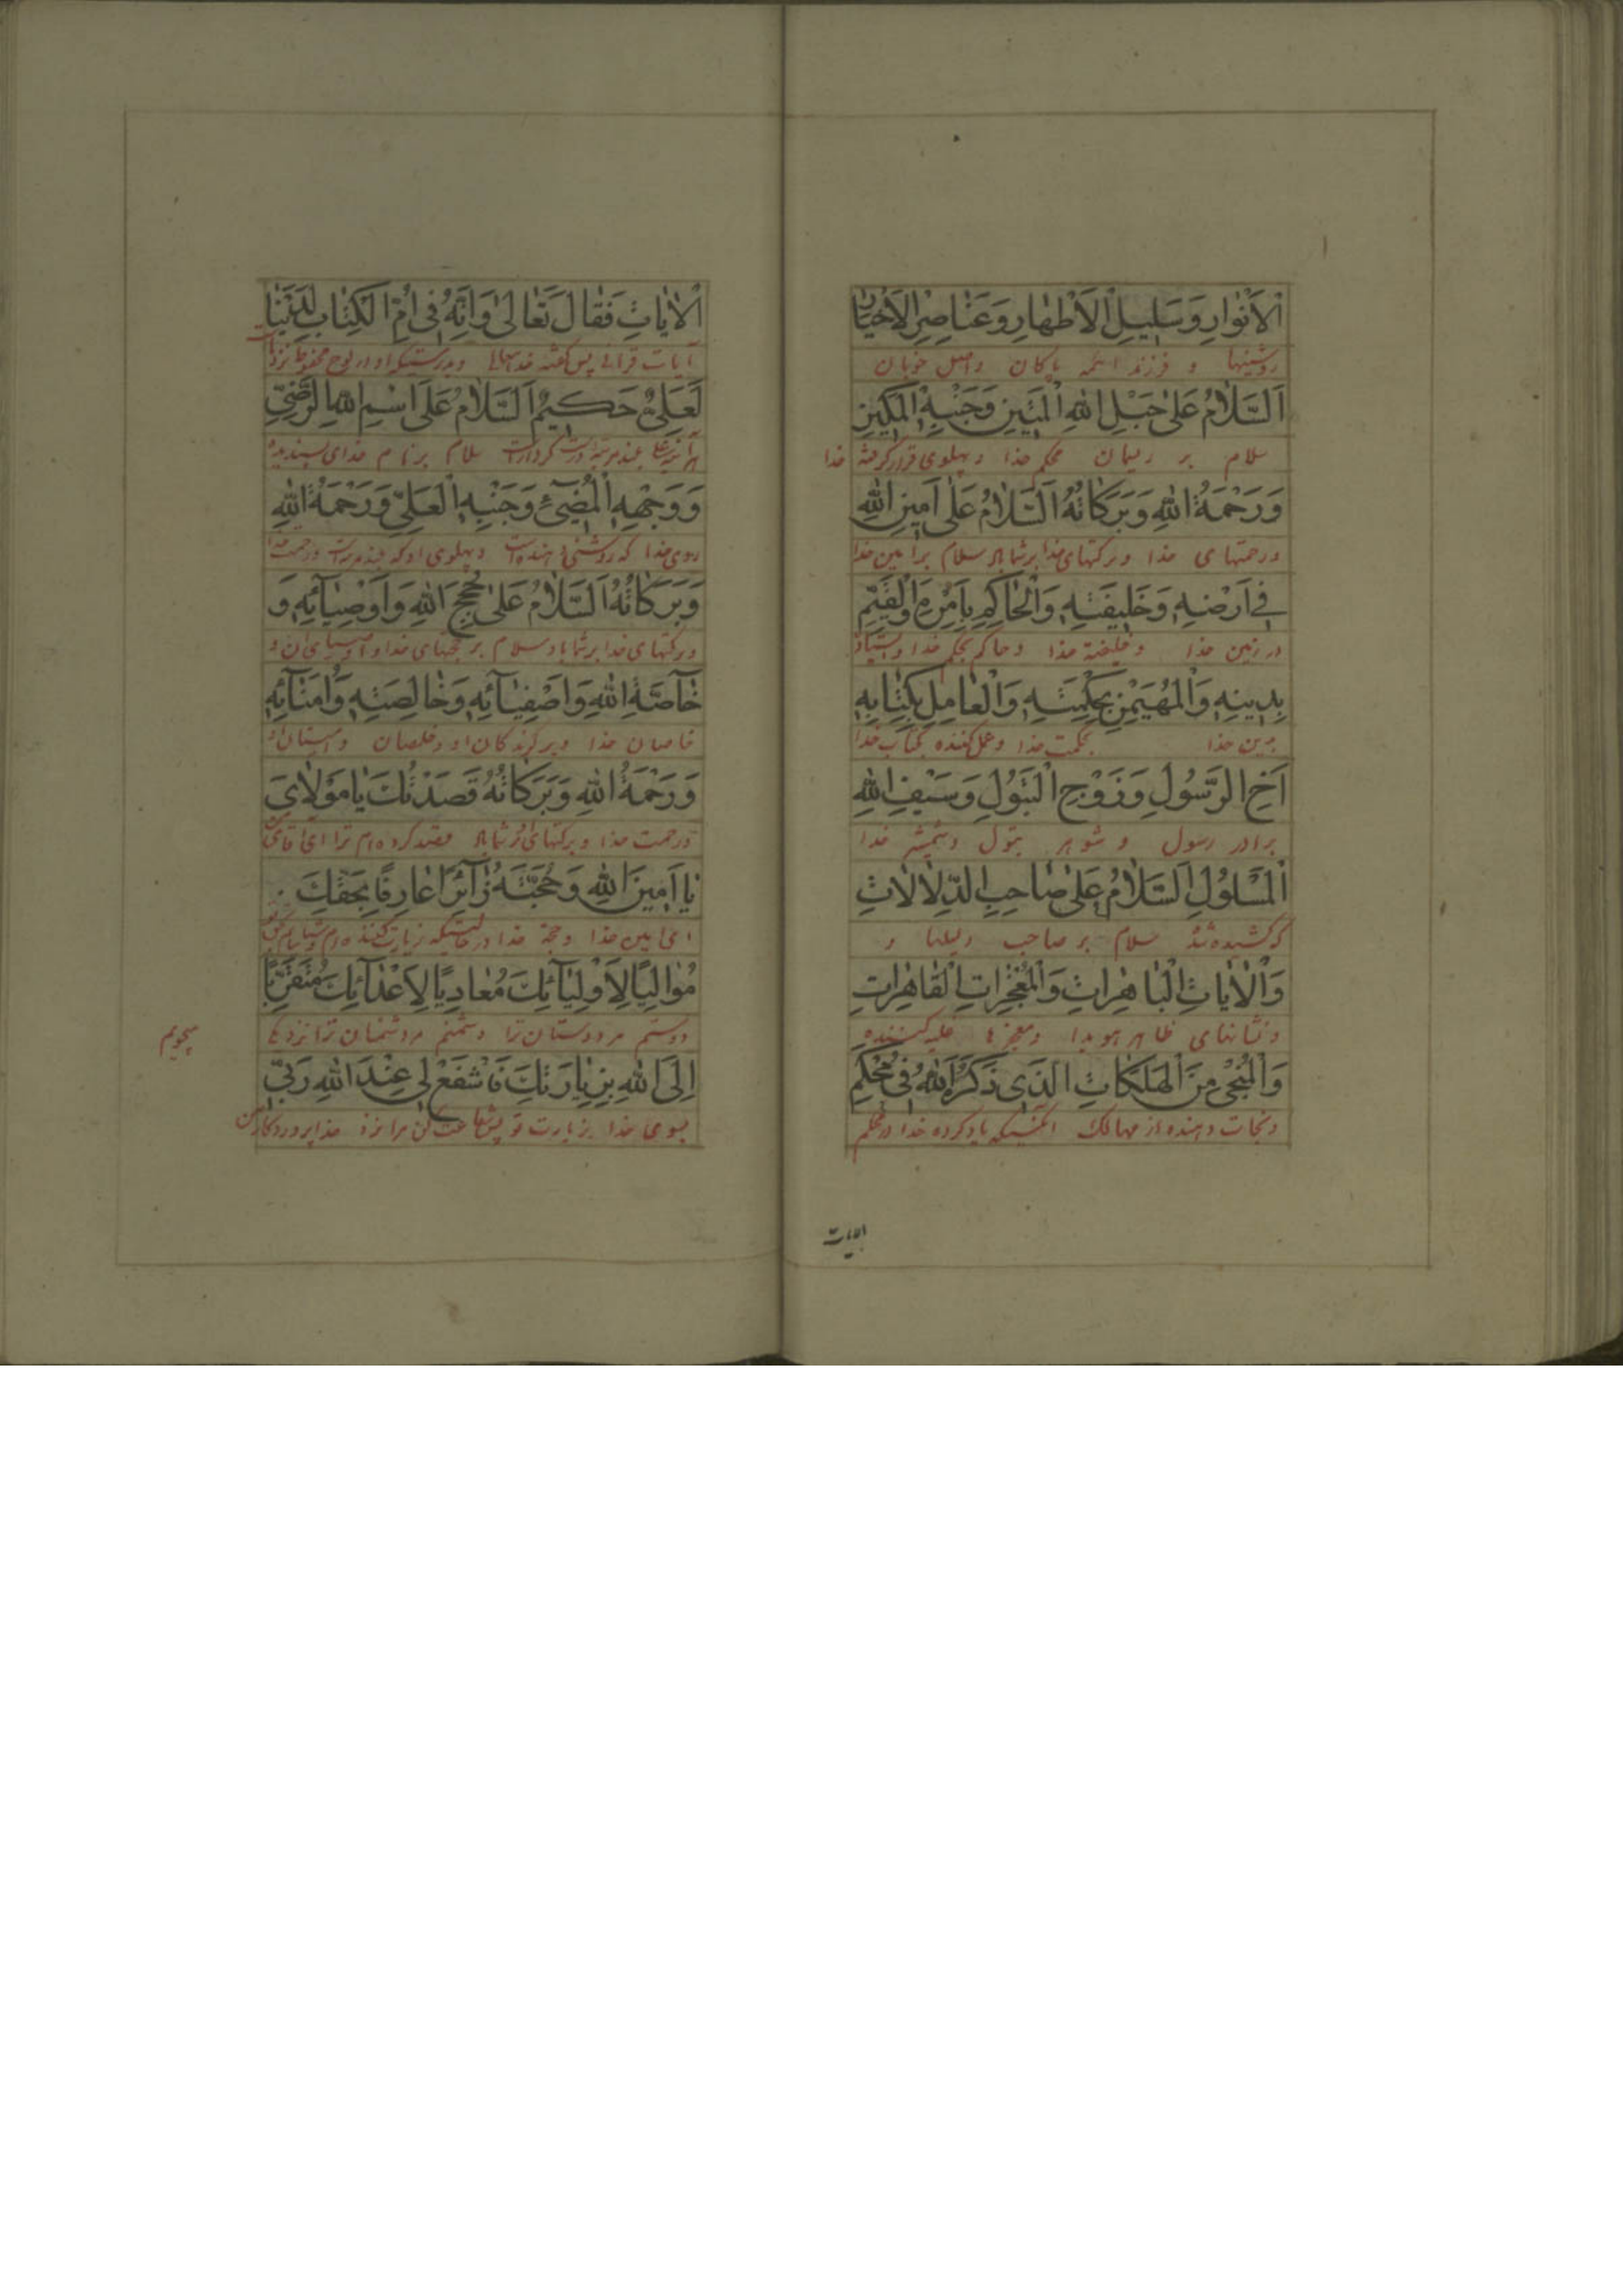 الْأَنْوارِ وَسَلِيلِ الْأَطْهارِ وَعَناصِرِ الْأَخْيارِ
روشنیها و فرزند ائمه پاکان و اصل خوبان
اَلسَّلامُ عَلىٰ حَبْلِ اللهِ الْمَتِينِ وَجَنْبِهِ الْمَكِينِ
سلام بر ریمان محکم خدا و پهلوی قرار گرفته خدا
وَرَحْمَةُ اللهِ وَبَرَكاتُهُ اَلسَّلامُ عَلىٰ اَمِينِ اللهِ
و رحمتهای خدا و برکتهای خدا بر شما باد سلام بر امین خدا
فِي اَرْضِهِ وَخَلِيفَتِهِ وَالْحاكِمِ بِاَمْرِهِ وَالْقَيِّمِ
در زمین خدا و خلیفهٔ خدا و حاکم بحکم خدا
بِدِينِهِ وَالْمُهَيْمِنِ بِحِكْمَتِهِ وَالْعامِلِ بِكِتابِهِ
بدین خدا بحکمت خدا و عمل کننده بکتاب خدا
اَخِ الرَّسُولِ وَزَوْجِ الْبَتُولِ وَسَيْفِ اللهِ
برادر رسول و شوهر بتول و شمشیر خدا
الْمَسْلُولِ اَلسَّلامُ عَلىٰ صاحِبِ الدِّلالاتِ
که کشیده شد سلام بر صاحب دلیلها و
وَالْاٰياتِ الْباهِراتِ وَالْمُعْجِزاتِ الْقاهِراتِ
و نشانهای ظاهر هویدا و معجزها غلبه کننده
وَالْمُنْجِي مِنَ الْهَلَكاتِ الَّذِي ذَكَرَهُ اللهُ فِي مُحْكَمِ
و نجات دهنده از مهالک آنکسیکه یاد کرده خدا در محکم
الایات
الْاٰياتِ فَقالَ تَعالىٰ وَاِنَّهُ فِي اُمِّ الْكِتابِ لَدَيْنا
آیات قرآنی پس گفته خدا و بدرستیکه او در لوح محفوظ نزد
لَعَلِيٌّ حَكِيمٌ اَلسَّلامُ عَلىٰ اسْمِ اللهِ الرَّضِيِّ
سلام بر نام خدای پسندیده
وَوَجْهِهِ الْمُضِيءِ وَجَنْبِهِ الْعَلِيِّ وَرَحْمَةُ اللهِ
روی خدا که روشنی دهنده است و پهلوی او که بلند مرتبه است و رحمت خدا
وَبَرَكاتُهُ اَلسَّلامُ عَلىٰ حُجَجِ اللهِ وَاَوْصِيائِهِ وَ
و برکتهای خدا بر شما باد سلام بر حجتهای خدا و اوصیای او
خاصَّةِ اللهِ وَاَصْفِيائِهِ وَخالِصَتِهِ وَاُمَنائِهِ
خاصان خدا و برگزیدگان او و خلصان
وَرَحْمَةُ اللهِ وَبَرَكاتُهُ قَصَدْتُكَ يا مَوْلايَ
و رحمت خدا و برکتهای او بر شما باد قصد کرده ام ترا ای آقای من
يا اَمِينَ اللهِ وَحُجَّتَهُ زائِرًا عارِفًا بِحَقِّكَ
ای امین خدا و حجة خدا در حالتیکه زیارت کننده ام
مُوالِيًا لِاَوْلِيائِكَ مُعادِيًا لِاَعْدائِكَ مُتَقَرِّبًا
دوستم مر دوستان ترا و دشمنم مر دشمنان ترا نزدیکی
میجویم
اِلَى اللهِ بِزِيارَتِكَ فَاشْفَعْ لِي عِنْدَ اللهِ رَبِّي
بسوی خدا بزیارت تو پس شفاعت کن مرا نزد خدا پروردگار من